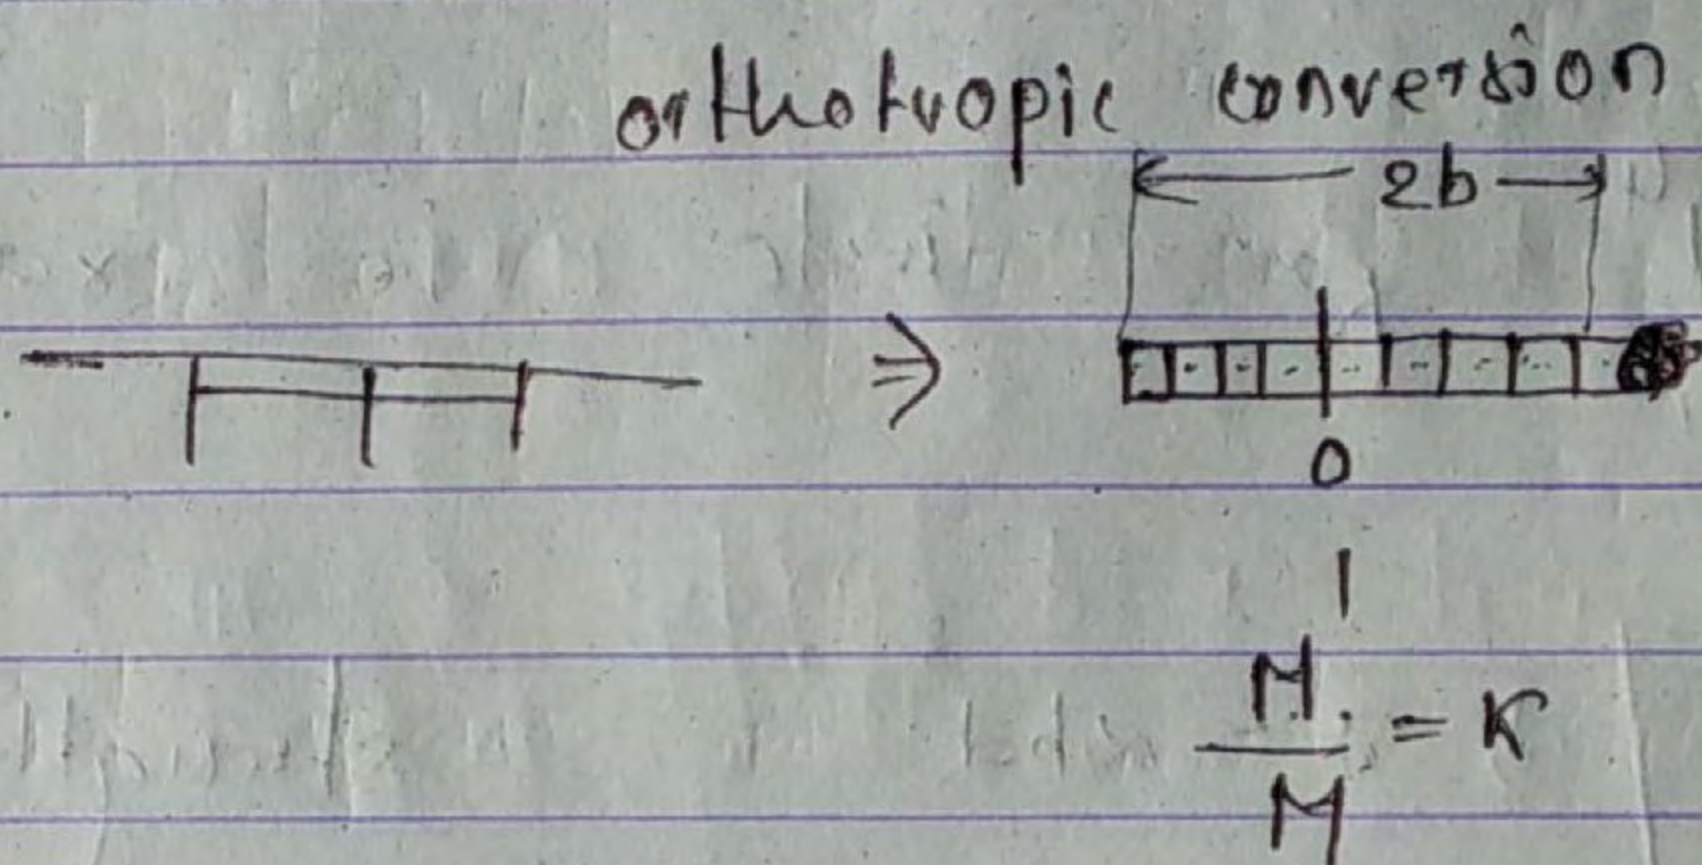 orthotropic conversion
2b
0
1
M
— = K
M